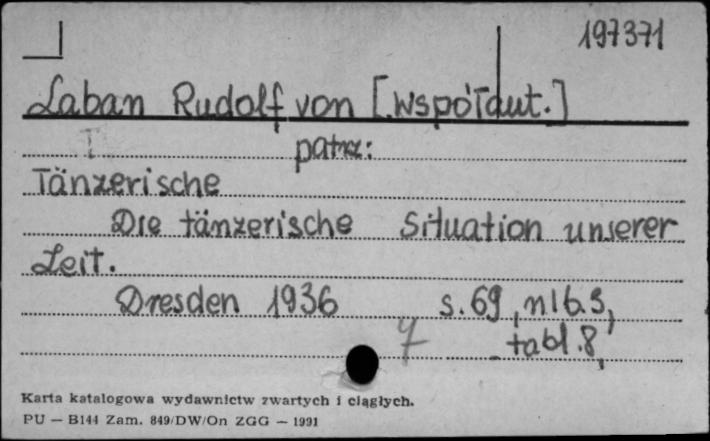 197371
Laban Rudolf von [współaut.]
patrz:
Tänzerische
Die tänzerische Situation unserer
Zeit.
Dresden 1936 s. 69, nlb. 3,
tabl. 8,
Karta katalogowa wydawnictw zwartych i ciągłych.
PU — B144 Zam. 849/DW/On ZGG — 1991